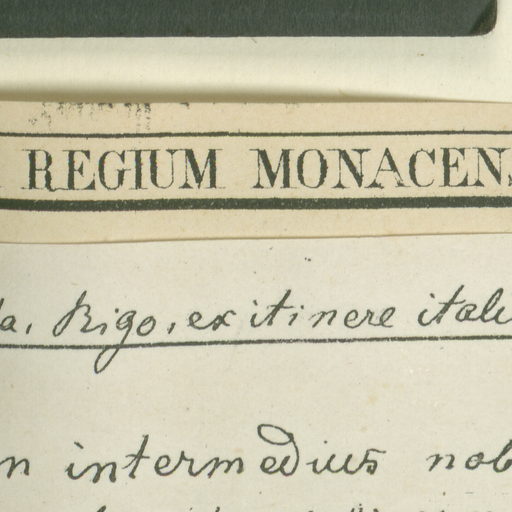 REGIUM MONACEN
a, Rigo, ex itinere itali
n intermedius nob